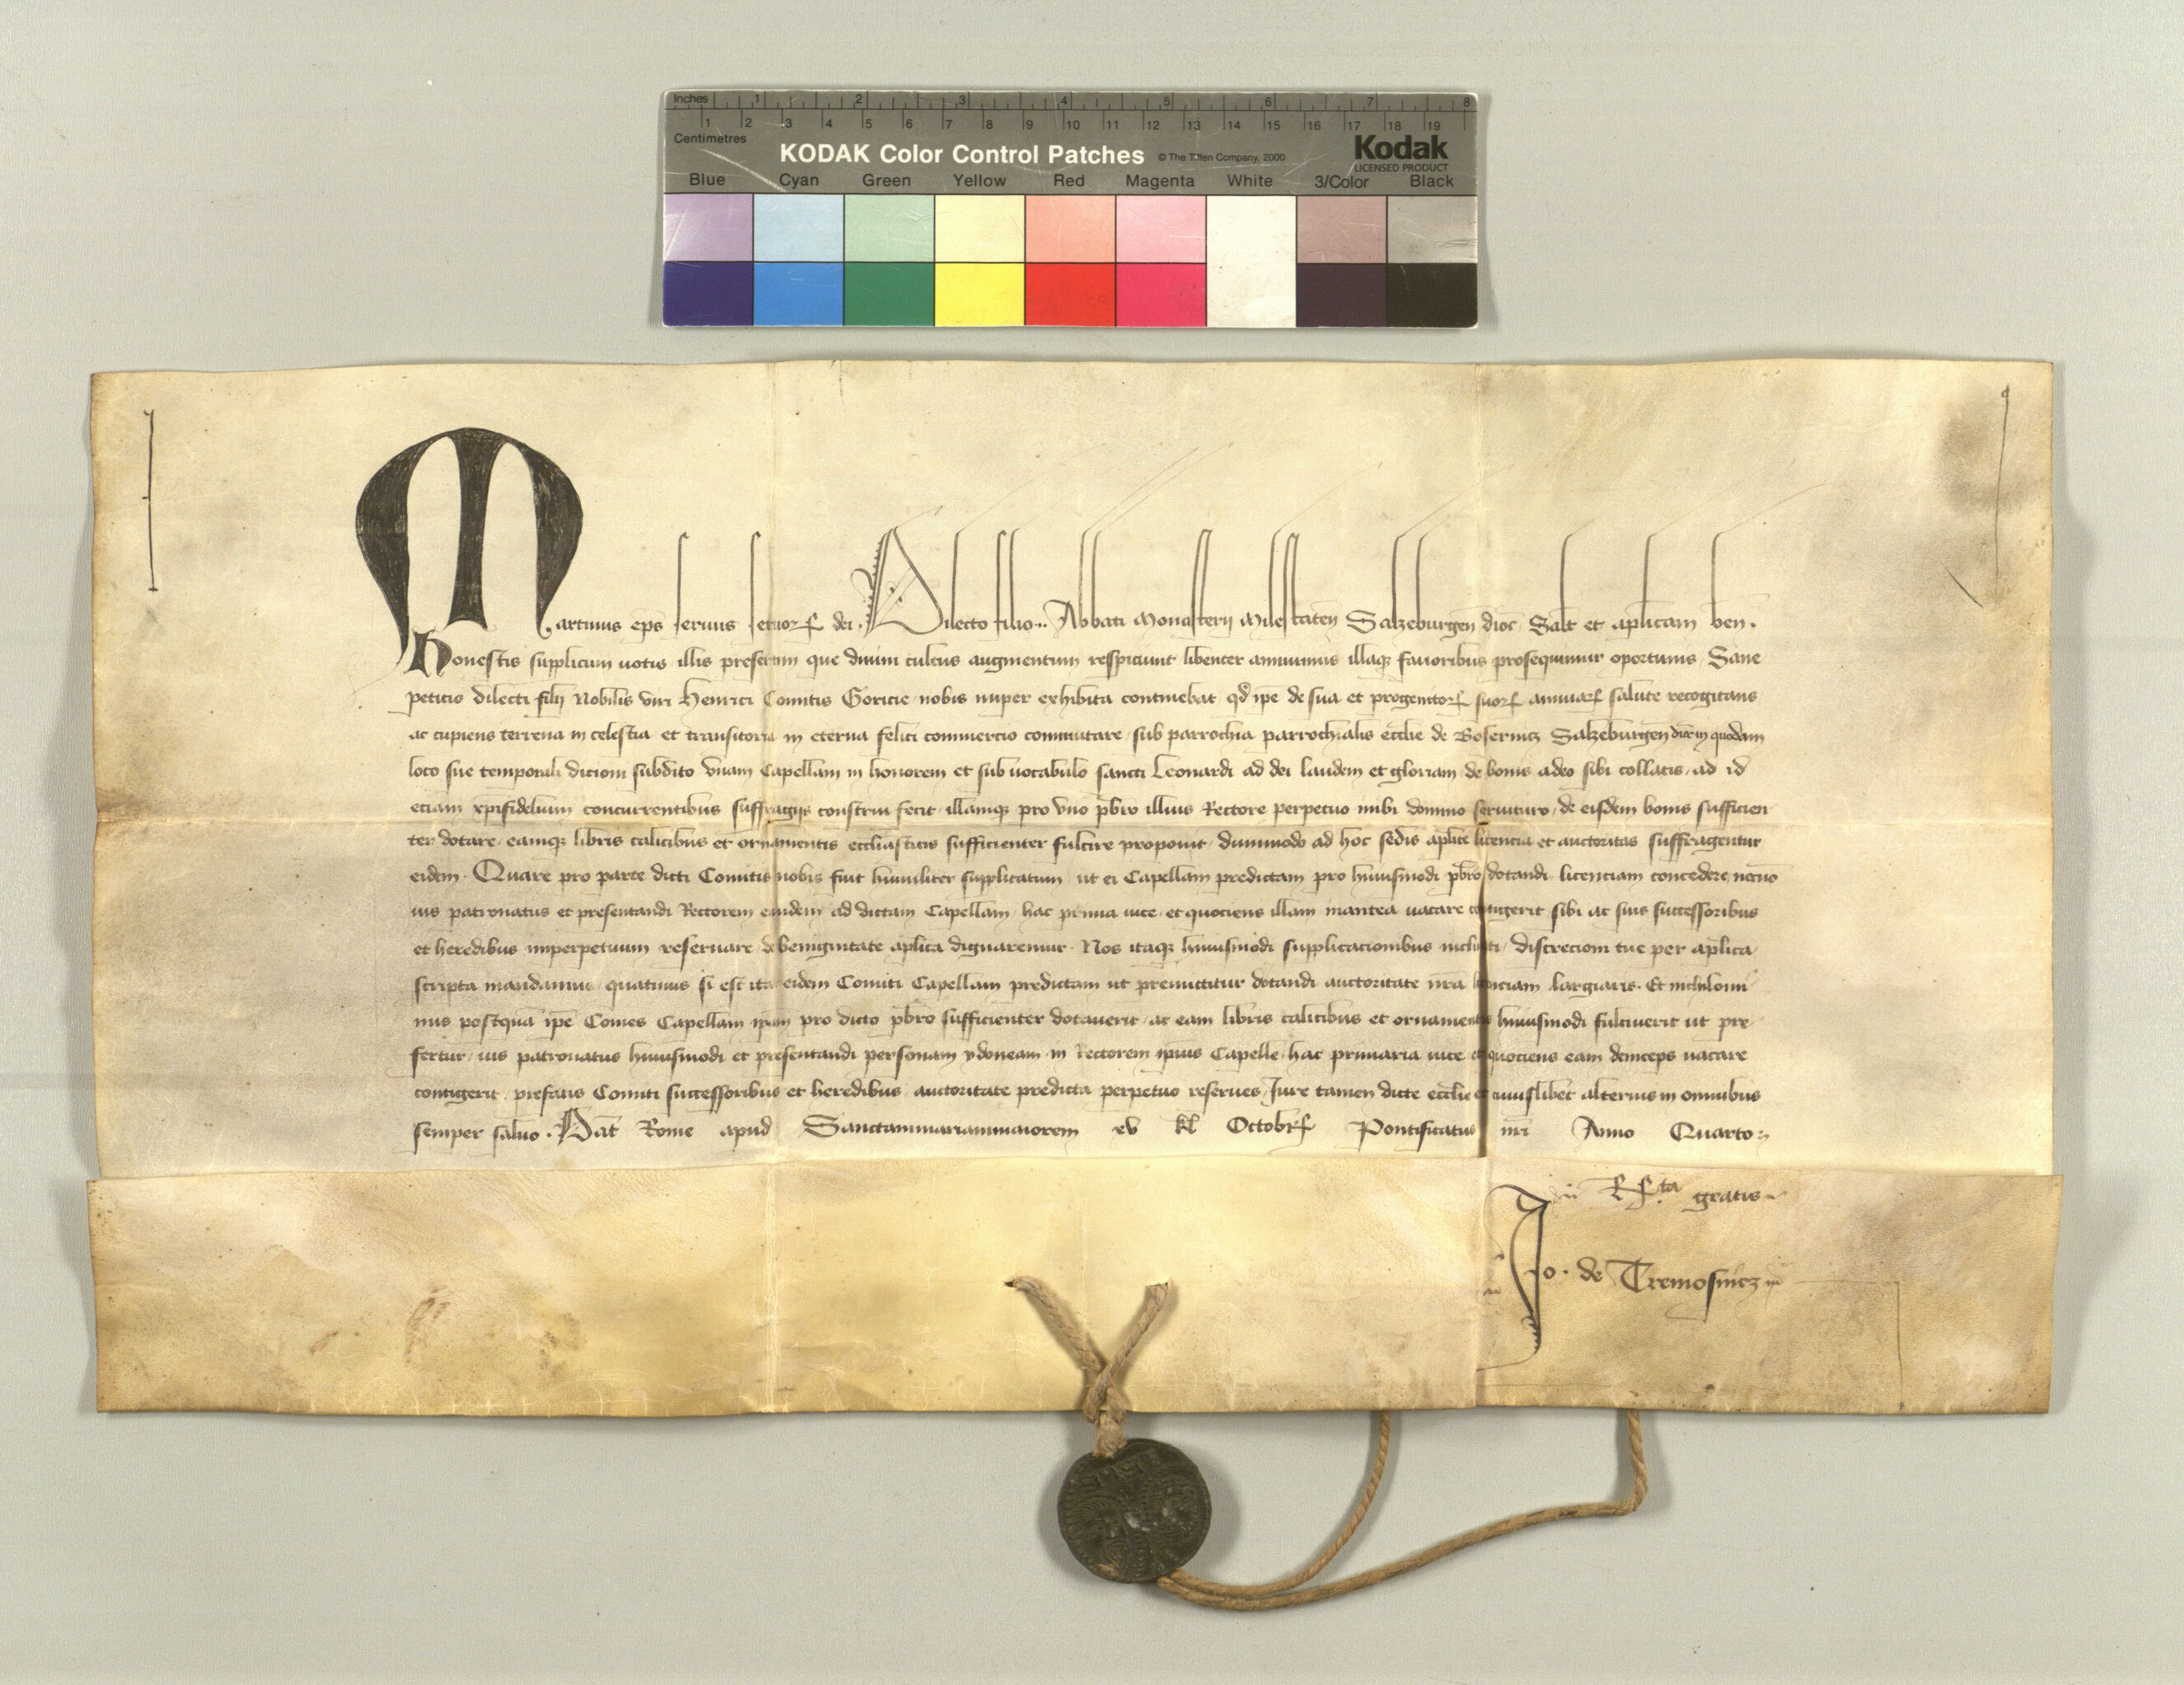 Inches 1 2 3 4 5 6 7 8
1 2 3 4 5 6 7 8 9 10 11 12 13 14 15 16 17 18 19
Centimetres
KODAK Color Control Patches © The Tiffen Company, 2000 Kodak
LICENSED PRODUCT
Blue Cyan Green Yellow Red Magenta White 3/Color Black
Martinus ep̄s seruus seruoꝝ dei. Dilecto filio .. Abbati Monasterij Milestateñ Salzeburgeñ dioc̄ Salt̄ et ap̄licam ben̄.
Honestis supplicum uotis illis presertim que diuini cultus augmentum respiciunt libenter annuimus illaqꝫ fauoribus prosequimur oportunis Sane
peticio dilecti filij Nobilis viri Henrici Comitis Goricie nobis nuper exhibita continebat qd̄ ip̄e de sua et progenitoꝝ suoꝝ animaꝝ salute recogitans
ac cupiens terrena in celestia et transitoria in eterna felici commercio commutare sub parrochia parrochialis eccl̄ie de Bosernicz Salzeburgeñ dioc̄ in quodam
loco sue temporali dicioni subdito vnam Capellam in honorem et sub uocabulo sancti Leonardi ad dei laudem et gloriam de bonis a deo sibi collatis ad id
etiam xp̄ifidelium concurrentibus suffragijs construi fecit illamqꝫ pro vno pb̄ro illius Rectore perpetuo inibi domino seruituro de eisdem bonis sufficien
ter dotare eamqꝫ libris calicibus et ornamentis eccl̄iasticis sufficienter fulcire proponit dummodo ad hoc sedis ap̄lice licentia et auctoritas suffragentur
eidem. Quare pro parte dicti Comitis nobis fuit humiliter supplicatum ut ei Capellam predictam pro huiusmodi pb̄ro dotandi licentiam concedere necno
ius patronatus et presentandi Rectorem eiusdem ad dictam Capellam hac prima uice et quociens illam inantea uacare contigerit sibi ac suis successoribus
et heredibus imperpetuum reseruare de benignitate ap̄lica dignaremur. Nos itaqꝫ huiusmodi supplicacionibus inclinati discrecioni tue per ap̄lica
scripta mandamus quatinus si est ita eidem Comiti Capellam predictam ut premittitur dotandi auctoritate nr̄a licenciam largiaris. Et nichilomi
nus postqua ip̄e Comes Capellam ip̄am pro dicto pb̄ro sufficienter dotauerit ac eam libris calicibus et ornamentis huiusmodi fulciuerit ut pre
fertur ius patronatus huiusmodi et presentandi personam ydoneam in Rectorem ipius Capelle hac primaria uice et quociens eam deinceps uacare
contigerit prefatis Comiti successoribus et heredibus auctoritate predicta perpetuo reserues Iure tamen dicte eccl̄ie et cuiuslibet alterius in omnibus
semper saluo. Dat̄ Rome apud Sanctammariammaiorem xv kl̄ Octobꝝ Pontificatus nr̄i Anno Quarto
Rta gratis
Jo. de Tremosnicz